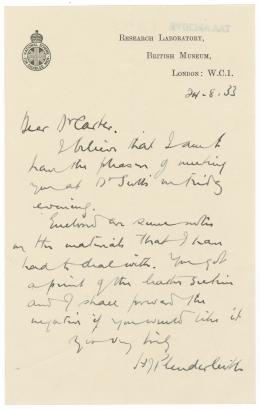 RESEARCH LABORATORY,
BRITISH MUSEUM,
LONDON: W.C.1.
24-8-33
Dear Dr Carter.
I believe that I am to
have the pleasure of meeting
you at Dr Scott's on Friday
evening.
Enclosed are some notes
on the materials that I have
had to deal with. You got
a print of the leather section
and I shall forward the
negative if you would like it
Yours very truly
H J Plenderleith